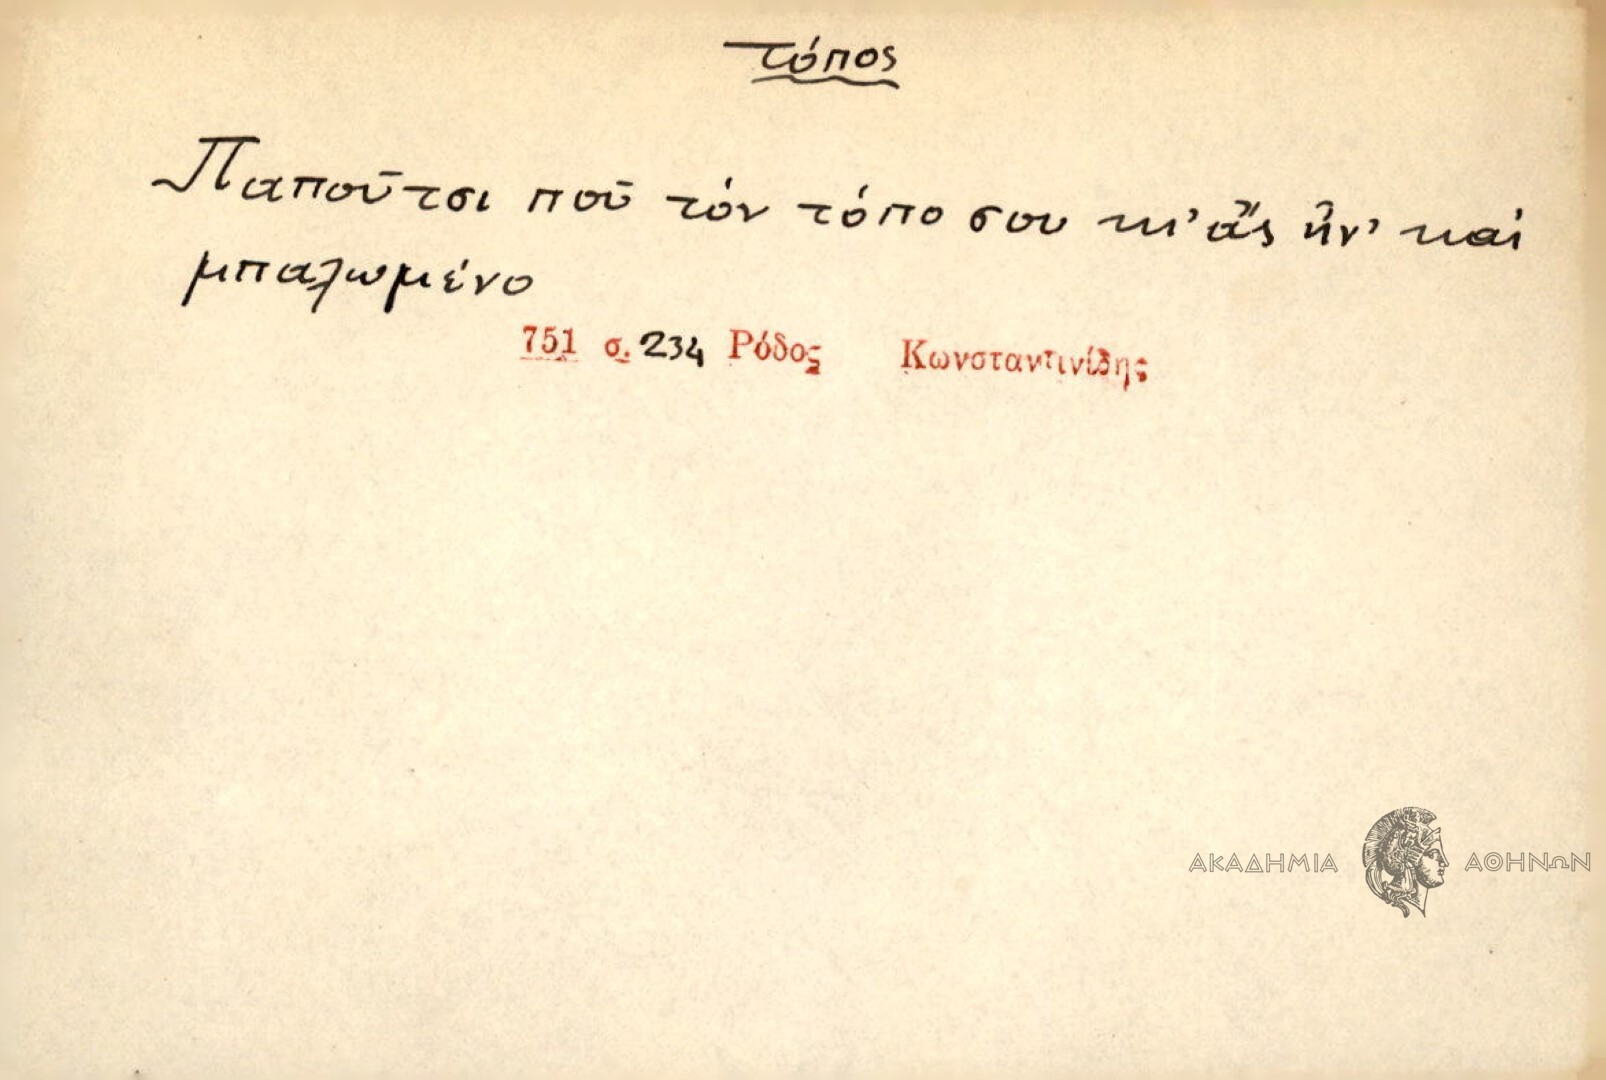 τόπος
Παποῦτσι ποῦ τόν τόπο σου κι' ἄς ἦν' καί
μπαλωμένο
751 σ. 234 Ρόδος Κωνσταντινίδης
ΑΚΑΔΗΜΙΑ ΑΘΗΝΩΝ